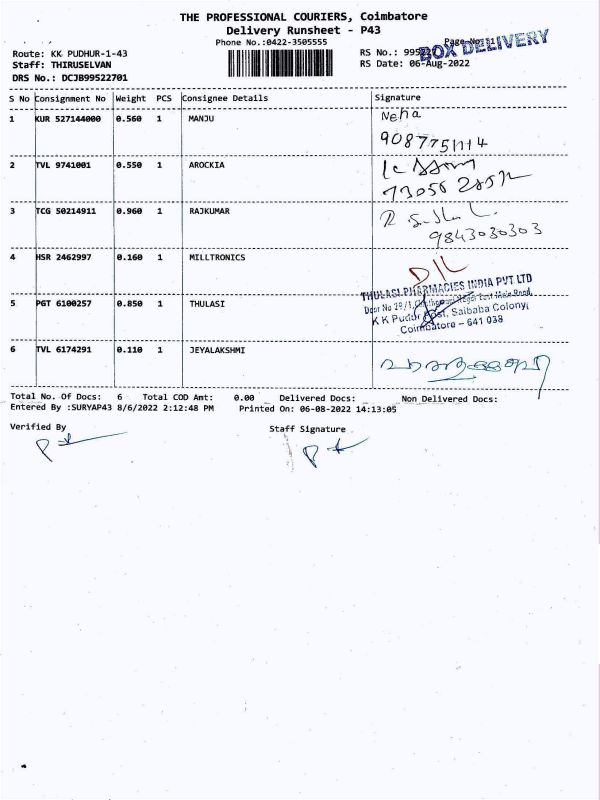 THE PROFESSIONAL COURIERS, Coimbatore
Delivery Runsheet - P43
Phone No.:0422-3505555
Page No:1
BOX DELIVERY
Route: KK PUDHUR-1-43
RS No.: 99522
Staff: THIRUSELVAN
RS Date: 06-Aug-2022
DRS No.: DCJB99522701
S No Consignment No Weight PCS Consignee Details Signature
1 KUR 527144000 0.560 1 MANJU Neha
2 TVL 9741001 0.550 1 AROCKIA
3 TCG 50214911 0.960 1 RAJKUMAR
9843030303
4 HSR 2462997 0.160 1 MILLTRONICS D/L
5 PGT 6100257 0.850 1 THULASI
THULASI PHARMACIES INDIA PVT LTD
Door No 29/1, East Main Road,
K K Pudur Post, Saibaba Colony,
Coimbatore - 641 038
6 TVL 6174291 0.110 1 JEYALAKSHMI
Total No. Of Docs: 6 Total COD Amt: 0.00 Delivered Docs: Non Delivered Docs:
Entered By :SURYAP43 8/6/2022 2:12:48 PM Printed On: 06-08-2022 14:13:05
Verified By Staff Signature